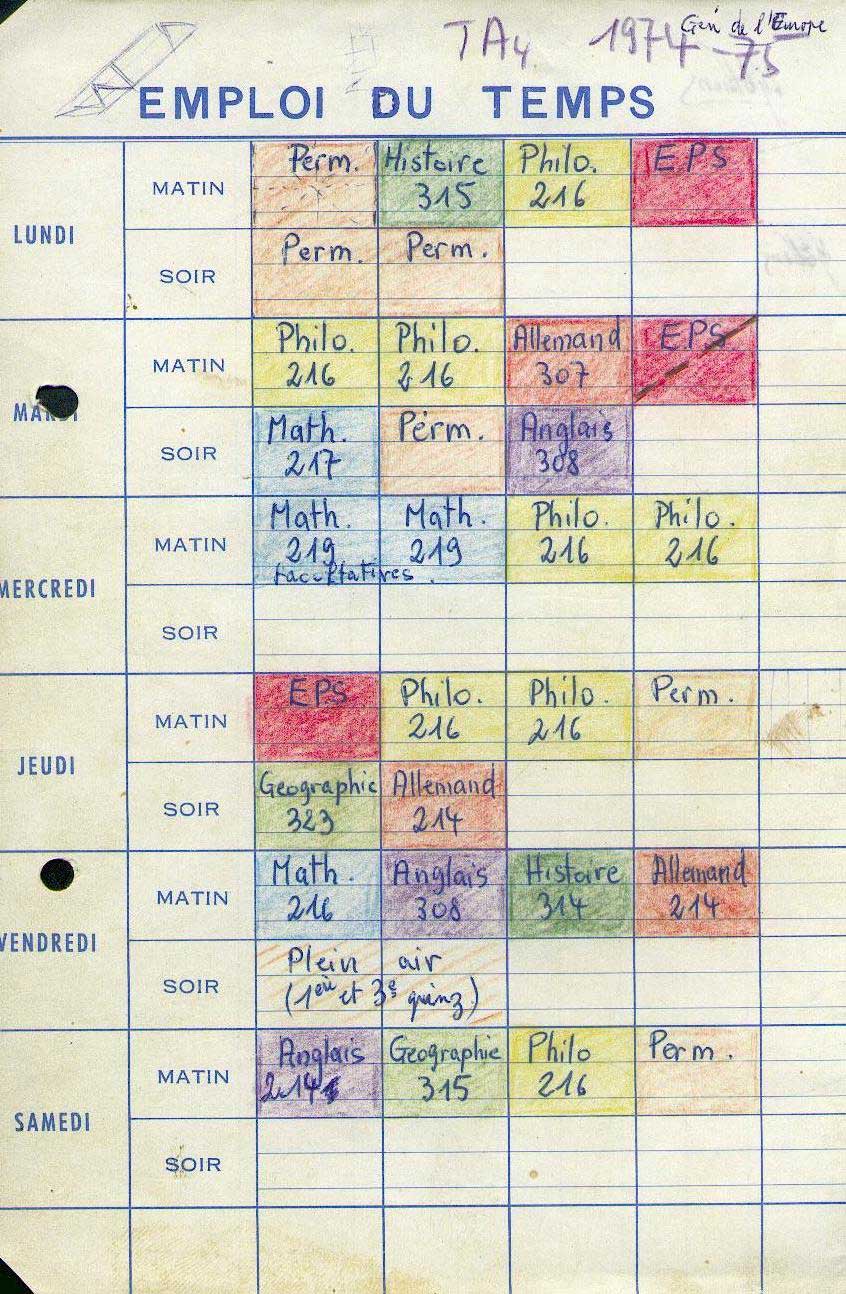 TA4 1974-75
de l'Europe
EMPLOI DU TEMPS
LUNDI
MATIN
Perm. Histoire Philo. EPS
315 216
SOIR
Perm. Perm.
MARDI
MATIN
Philo. Philo. Allemand EPS
216 216 307
SOIR
Math. Perm. Anglais
217 308
MERCREDI
MATIN
Math. Math. Philo. Philo.
219 219 216 216
facultatives.
SOIR
JEUDI
MATIN
EPS Philo. Philo. Perm.
216 216
SOIR
Geographie Allemand
323 214
VENDREDI
MATIN
Math. Anglais Histoire Allemand
216 308 314 214
SOIR
Plein air
(1ère et 3e quinz)
SAMEDI
MATIN
Anglais Geographie Philo Perm.
315 216
SOIR